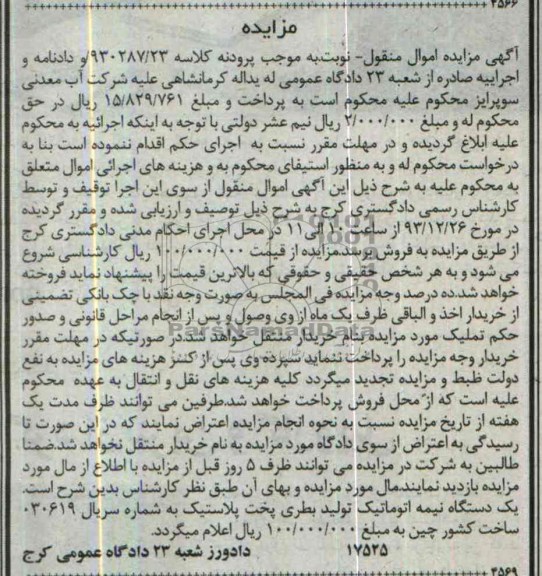 ۴۵۶۶
مزایده
آگهی مزایده اموال منقول- نوبت.به موجب پرودنه کلاسه ۹۳۰۲۸۷/۲۳/و دادنامه و
اجراییه صادره از شعبه ۲۳ دادگاه عمومی له یداله کرمانشاهی علیه شرکت آب معدنی
سوپرایز محکوم علیه محکوم است به پرداخت و مبلغ ۱۵/۸۲۹/۷۶۱ ریال در حق
محکوم له و مبلغ ۲/۰۰۰/۰۰۰ ریال نیم عشر دولتی با توجه به اینکه اجرائیه به محکوم
علیه ابلاغ گردیده و در مهلت مقرر نسبت به اجرای حکم اقدام ننموده است بنا به
درخواست محکوم له و به منظور استیفای محکوم به و هزینه های اجرائی اموال متعلق
به محکوم علیه به شرح ذیل این آگهی اموال منقول از سوی این اجرا توقیف و توسط
کارشناس رسمی دادگستری کرج به شرح ذیل توصیف و ارزیابی شده و مقرر گردیده
در مورخ ۹۳/۱۲/۲۶ از ساعت ۱۰ الی ۱۱ در محل اجرای احکام مدنی دادگستری کرج
از طریق مزایده به فروش برسد.مزایده از قیمت ۱۰۰/۰۰۰/۰۰۰ ریال کارشناسی شروع
می شود و به هر شخص حقیقی و حقوقی که بالاترین قیمت را پیشنهاد نماید فروخته
خواهد شد.ده درصد وجه مزایده فی المجلس به صورت وجه نقد یا چک بانکی تضمینی
از خریدار اخذ و الباقی ظرف یک ماه از وی وصول و پس از انجام مراحل قانونی و صدور
حکم تملیک مورد مزایده بنام خریدار منتقل خواهد شد.در صورتیکه در مهلت مقرر
خریدار وجه مزایده را پرداخت ننماید سپرده وی پس از کسر هزینه های مزایده به نفع
دولت ظبط و مزایده تجدید میگردد کلیه هزینه های نقل و انتقال به عهده محکوم
علیه است که از محل فروش پرداخت خواهد شد.طرفین می توانند ظرف مدت یک
هفته از تاریخ مزایده نسبت به نحوه انجام مزایده اعتراض نمایند که در این صورت تا
رسیدگی به اعتراض از سوی دادگاه مورد مزایده به نام خریدار منتقل نخواهد شد.ضمنا
طالبین به شرکت در مزایده می توانند ظرف ۵ روز قبل از مزایده با اطلاع از مال مورد
مزایده بازدید نمایند.مال مورد مزایده و بهای آن طبق نظر کارشناس بدین شرح است.
یک دستگاه نیمه اتوماتیک تولید بطری پخت پلاستیک به شماره سریال ۰۳۰۶۱۹
ساخت کشور چین به مبلغ ۱۰۰/۰۰۰/۰۰۰ ریال اعلام میگردد.
۱۷۵۲۵ دادورز شعبه ۲۳ دادگاه عمومی کرج
۴۵۶۹
ParsNamadData